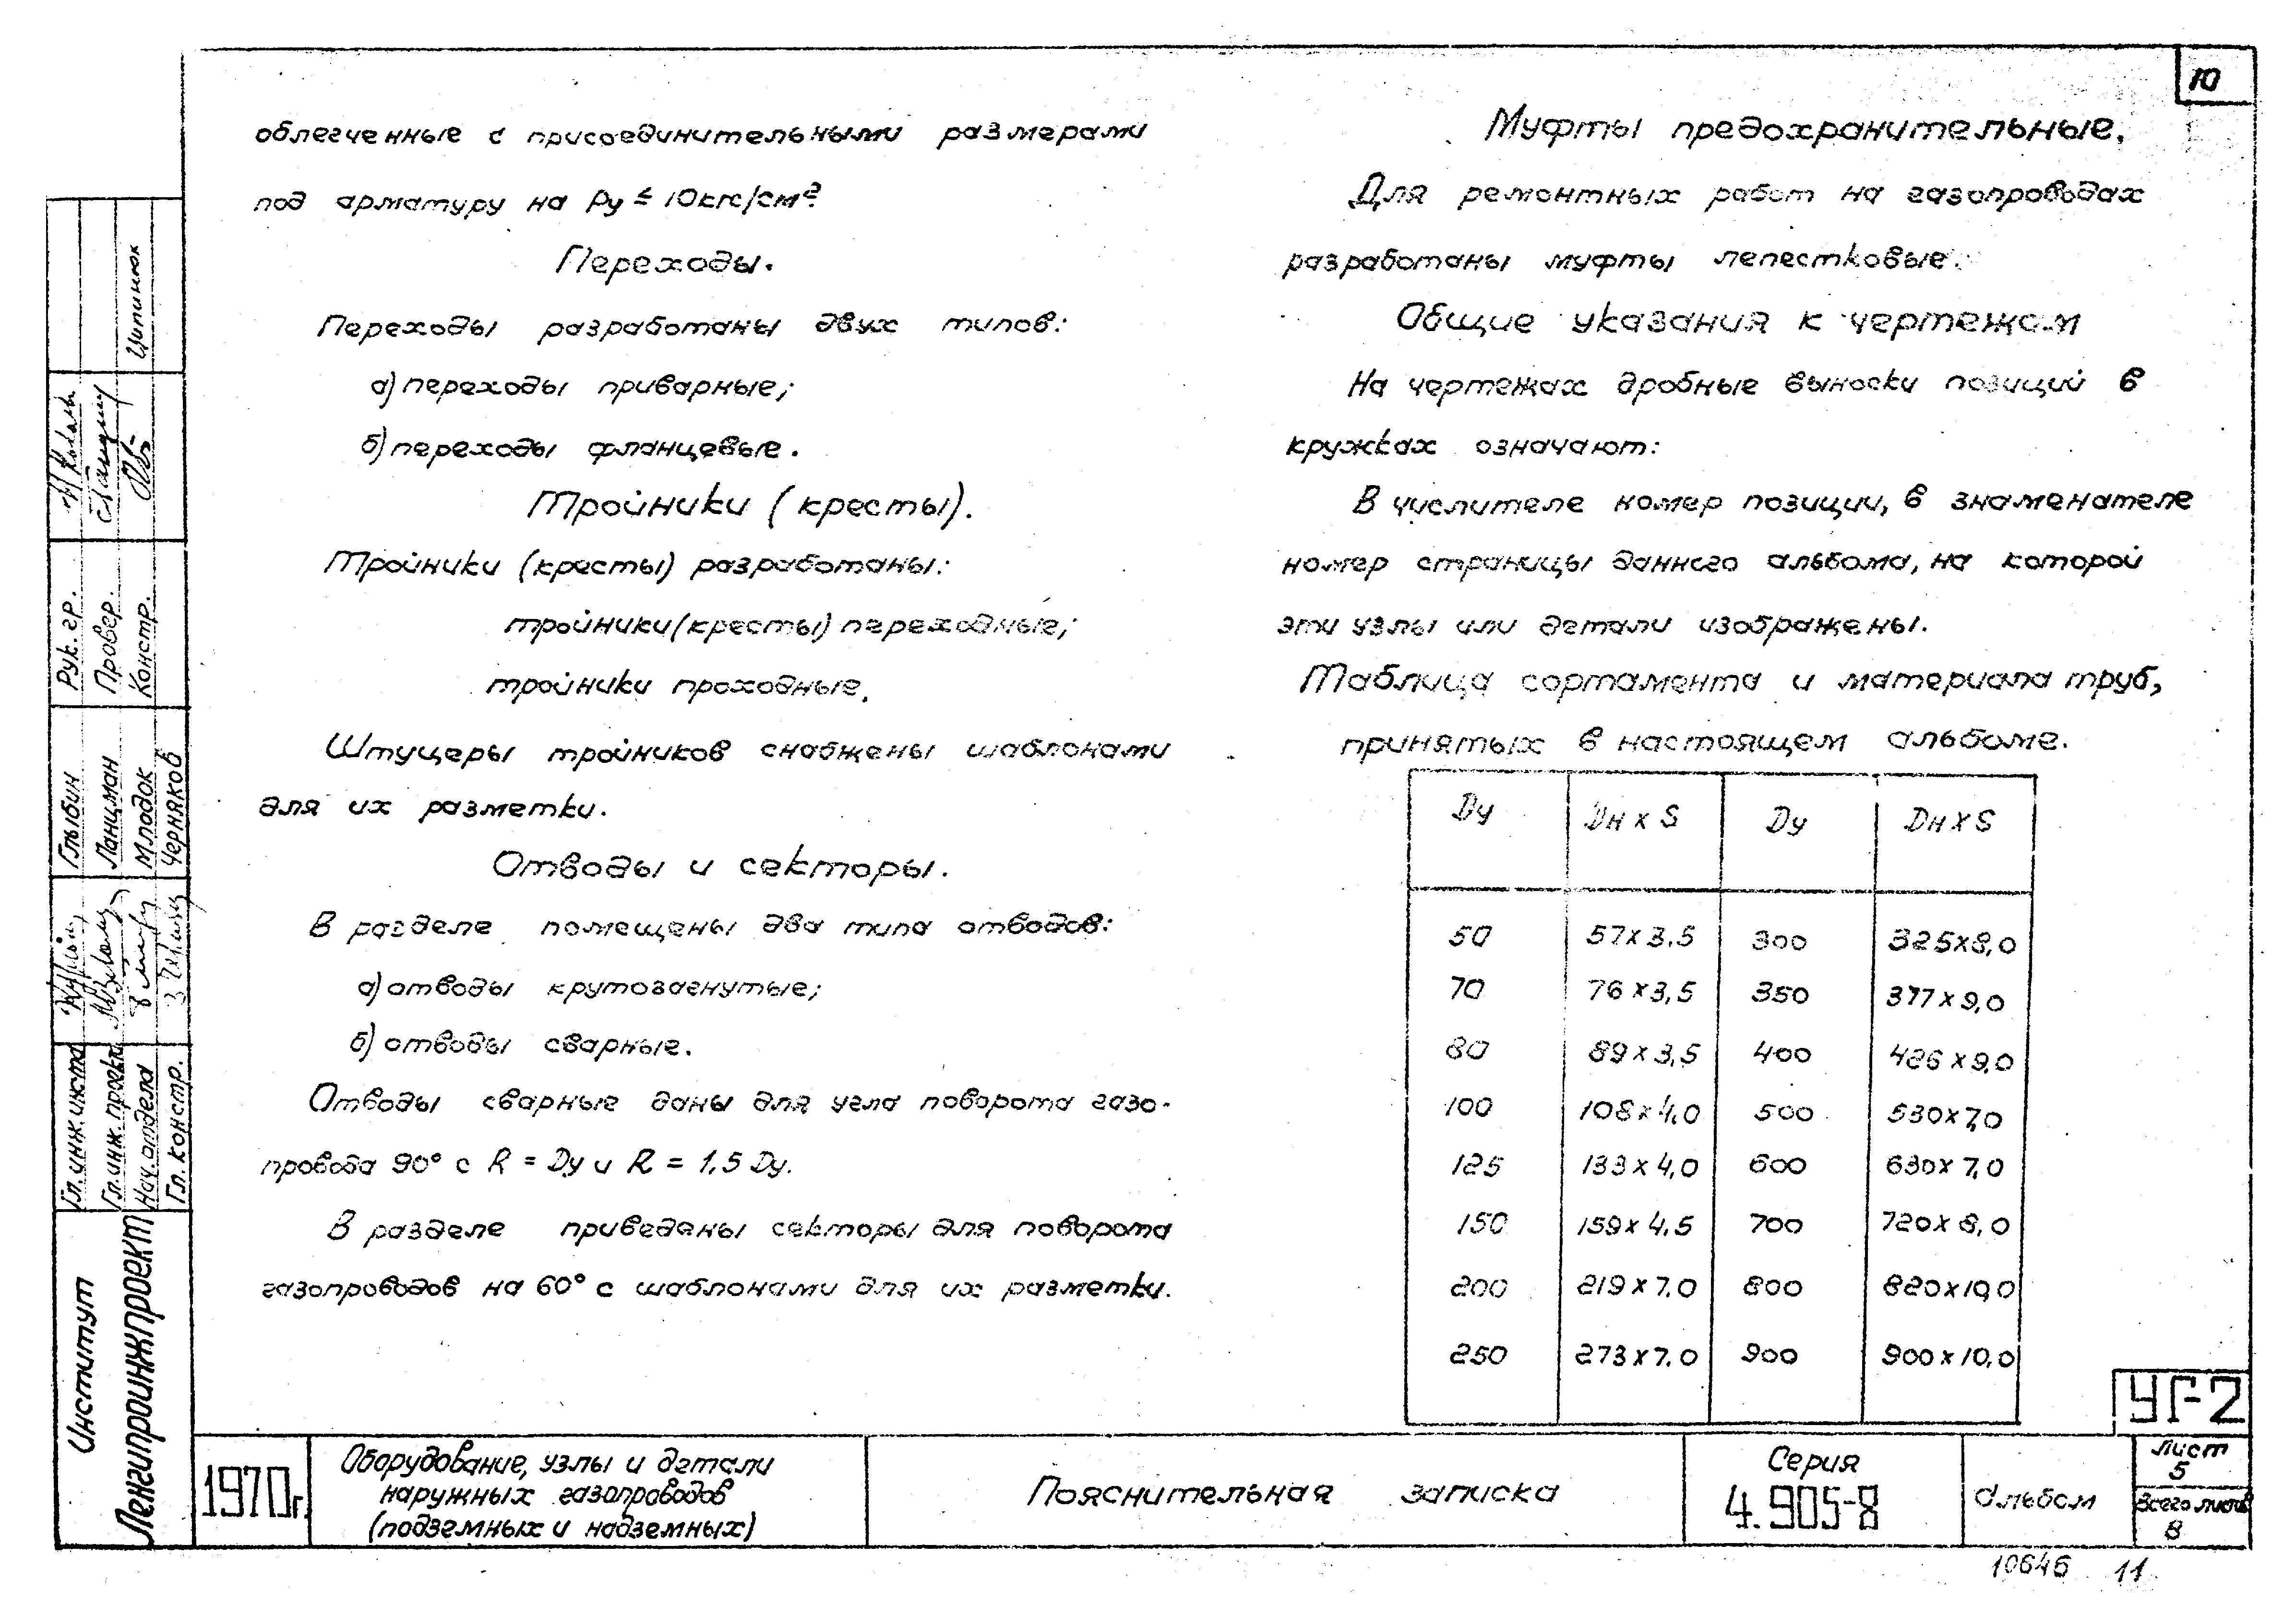 10
облегченные с присоединительными размерами
под арматуру на Ру ≤ 10кгс/см²
Переходы.
Переходы разработаны двух типов:
а) переходы приварные;
б) переходы фланцевые.
Тройники (кресты).
Тройники (кресты) разработаны:
тройники (кресты) переходные;
тройники проходные.
Штуцеры тройников снабжены шаблонами
для их разметки.
Отводы и секторы.
В разделе помещены два типа отводов:
а) отводы крутозагнутые;
б) отводы сварные.
Отводы сварные даны для угла поворота газо-
провода 90° с R = Ду и R = 1,5 Ду.
В разделе приведены секторы для поворота
газопроводов на 60° с шаблонами для их разметки.
Муфты предохранительные.
Для ремонтных работ на газопроводах
разработаны муфты лепестковые.
Общие указания к чертежам
На чертежах дробные выноски позиций в
кружках означают:
В числителе номер позиции, в знаменателе
номер страницы данного альбома, на которой
эти узлы или детали изображены.
Таблица сортамента и материала труб,
принятых в настоящем альбоме.
Ду Дн х S Ду Дн х S
50 57 х 3,5 300 325х8,0
70 76 х 3,5 350 377 х 9,0
80 89 х 3,5 400 426 х 9,0
100 108 х 4,0 500 530х7,0
125 133 х 4,0 600 630х 7,0
150 159 х 4,5 700 720х 8,0
200 219 х 7,0 800 820х10,0
250 273 х 7,0 900 900 х 10,0
УГ-2
1970г.
Оборудование, узлы и детали
наружных газопроводов
(подземных и надземных)
Пояснительная записка
Серия
4.905-8
Альбом
Лист
5
Всего листов
8
10646 11
Институт
Ленгипроинжпроект
Гл. инж. инста
Гл. инж. проекта
Нач. отдела
Гл. констр.
Глыбин
Ланцман
Младок
Черняков
Рук. гр.
Провер.
Констр.
Ципинюк